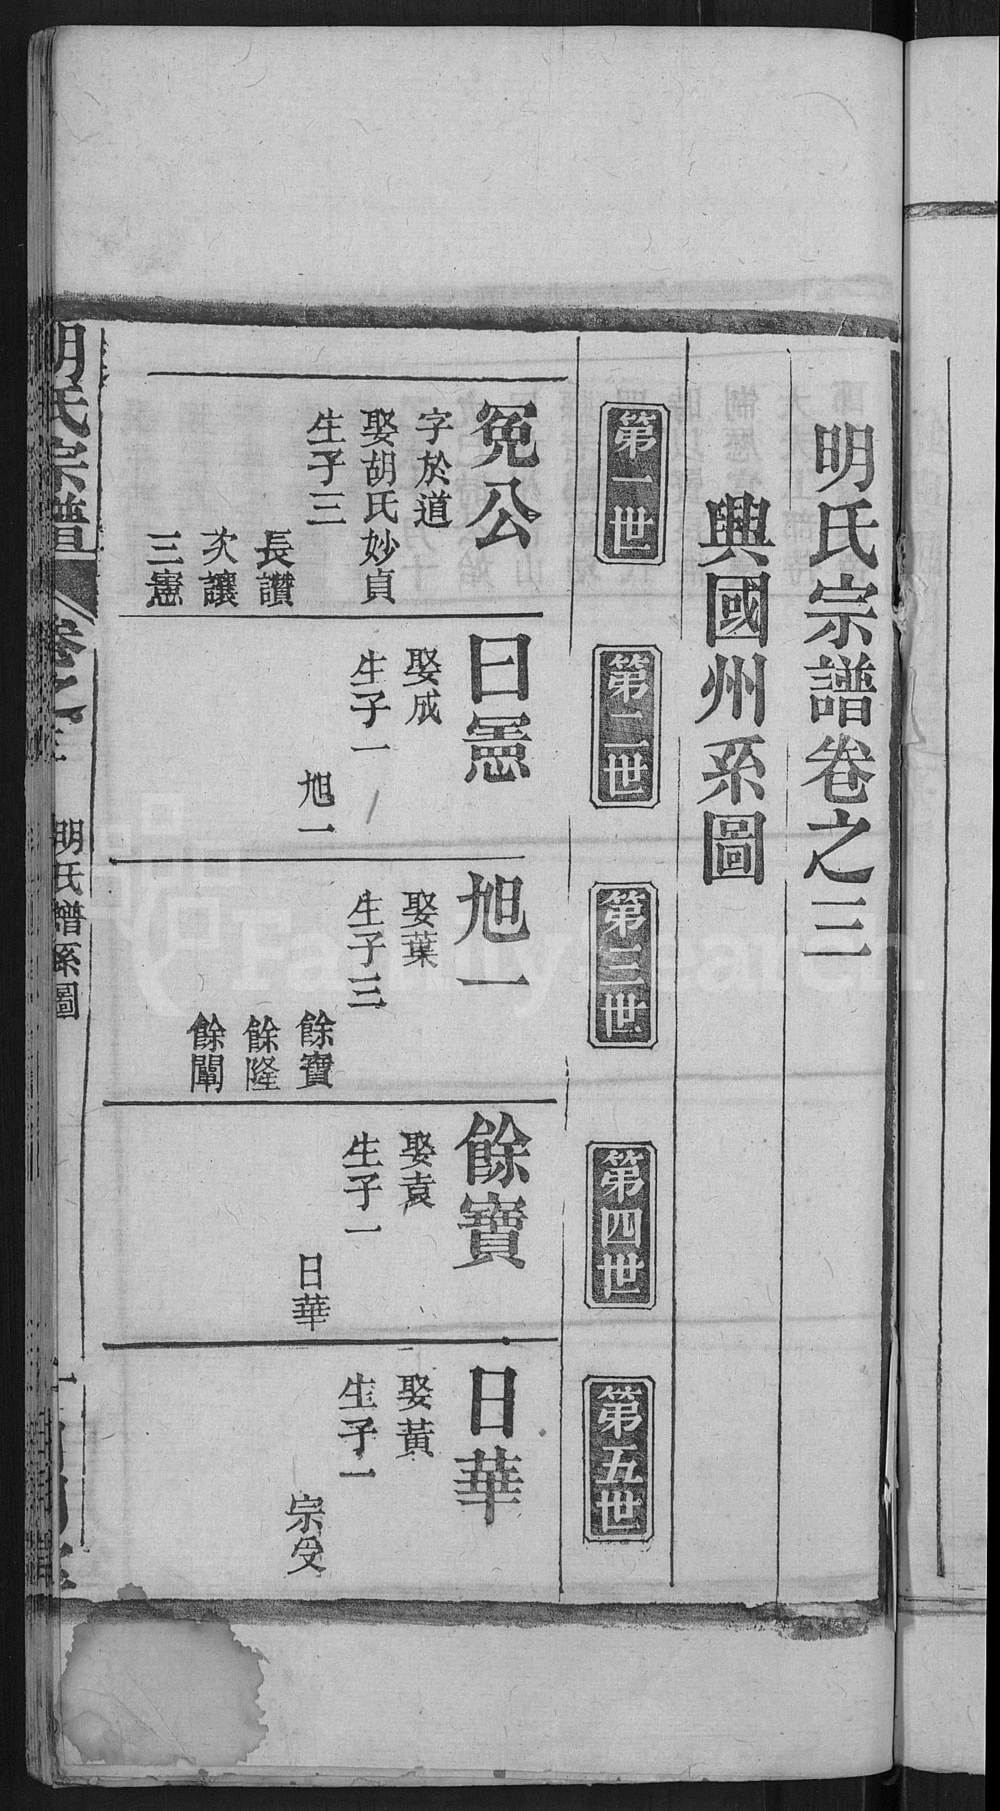 明氏宗譜卷之三
興國州系圖
第一世
第二世
第三世
第四世
第五世
冕公
字於道
娶胡氏妙貞
生子三
長讚
次讓
三憲
曰憲
娶成
生子一
旭一
旭一
娶葉
生子三
餘寶
餘隆
餘闡
餘寶
娶袁
生子一
日華
日華
娶黃
生子一
宗受
明氏宗譜
卷之三
明氏譜系圖
一
FamilySearch